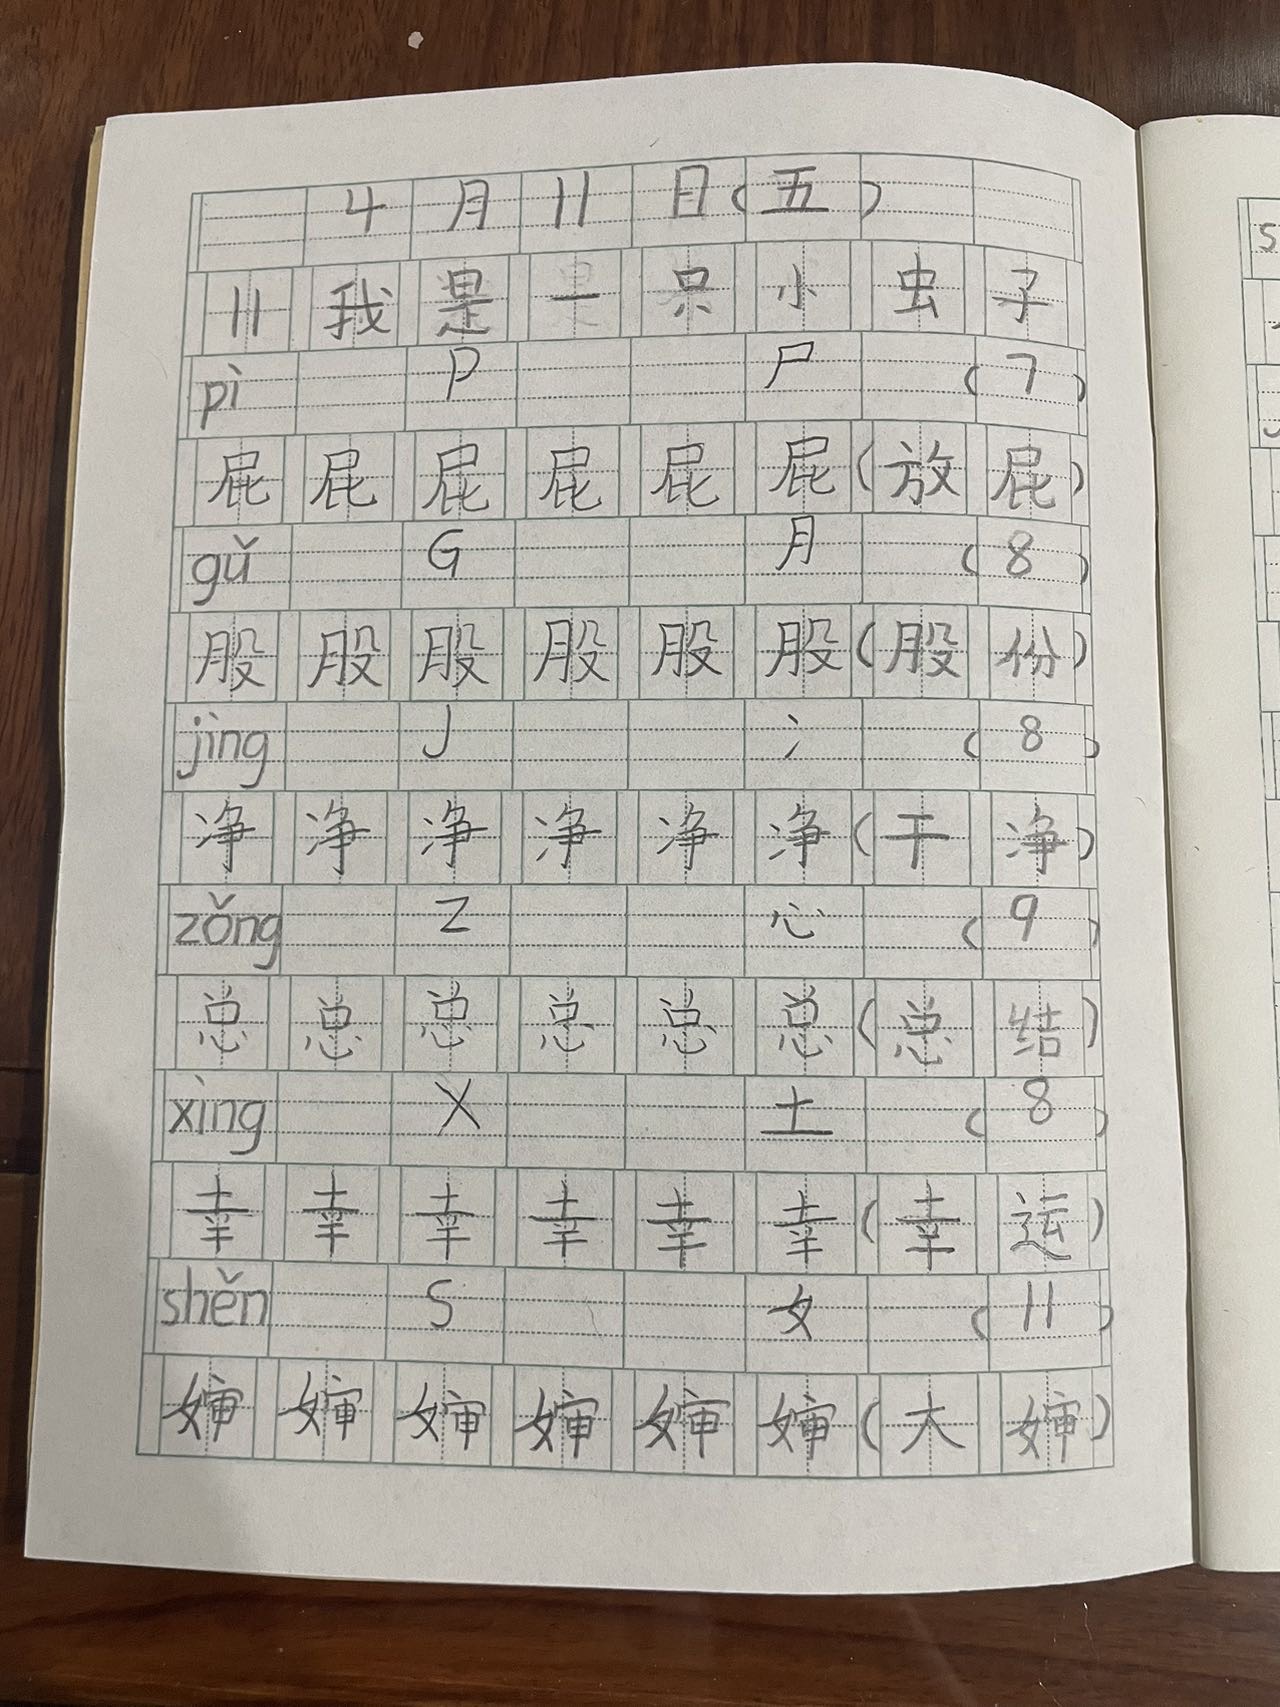 4月11日(五)
11 我是一只小虫子
pì P 尸 (7)
屁屁屁屁屁屁(放屁)
gǔ G 月 (8)
股股股股股股(股份)
jìng J 冫 (8)
净净净净净净(干净)
zǒng Z 心 (9)
总总总总总总(总结)
xìng X 土 (8)
幸幸幸幸幸幸(幸运)
shěn S 女 (11)
婶婶婶婶婶婶(大婶)
s